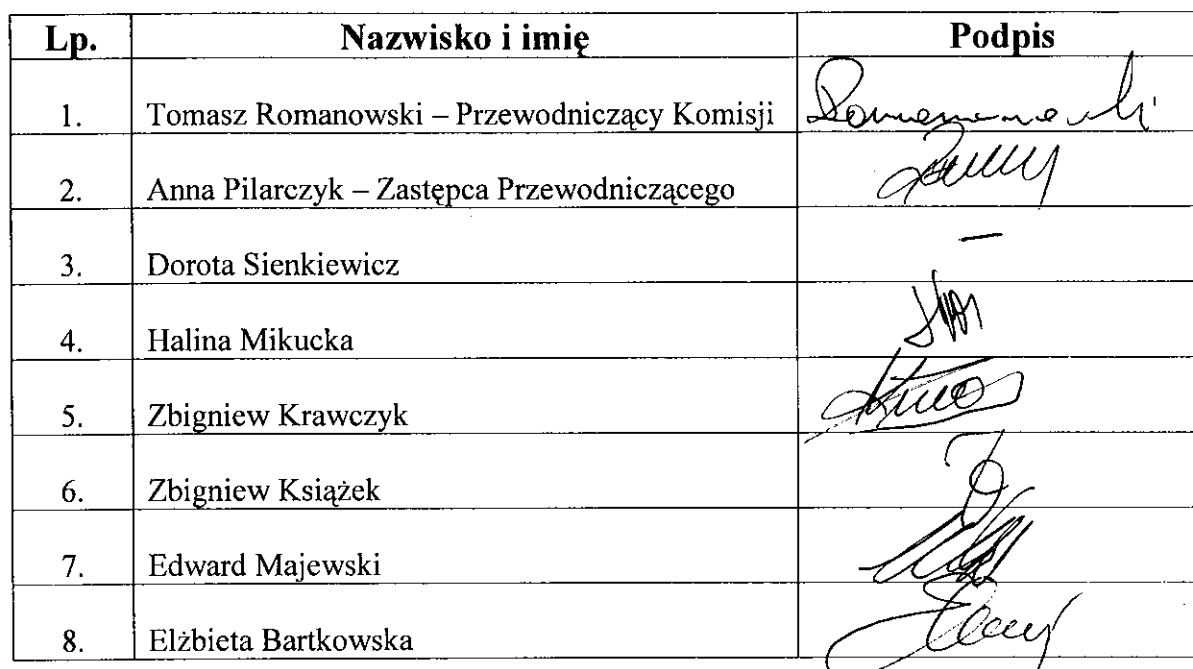 Lp. Nazwisko i imię Podpis
1. Tomasz Romanowski – Przewodniczący Komisji Romanowski
2. Anna Pilarczyk – Zastępca Przewodniczącego
3. Dorota Sienkiewicz –
4. Halina Mikucka
5. Zbigniew Krawczyk
6. Zbigniew Książek
7. Edward Majewski
8. Elżbieta Bartkowska